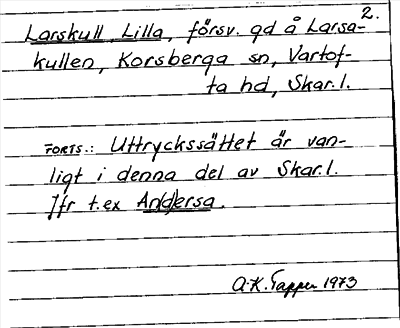 2.
Larskull Lilla, försv. gd å Larsa-
kullen, Korsberga sn, Vartof-
ta hd, Skar.l.
FORTS.: Uttryckssättet är van-
ligt i denna del av Skar.l.
Jfr t.ex An(d)ersa.
A.K. Tapper 1973